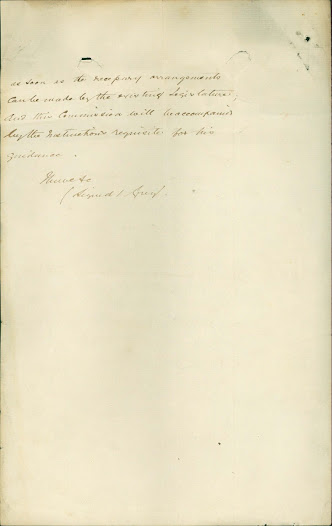 as soon as the necessary arrangements
can be made by the existing Legislature,
and this Commission will be accompanied
by the Instructions requisite for his
guidance.
I have &c
(Signed) Grey.